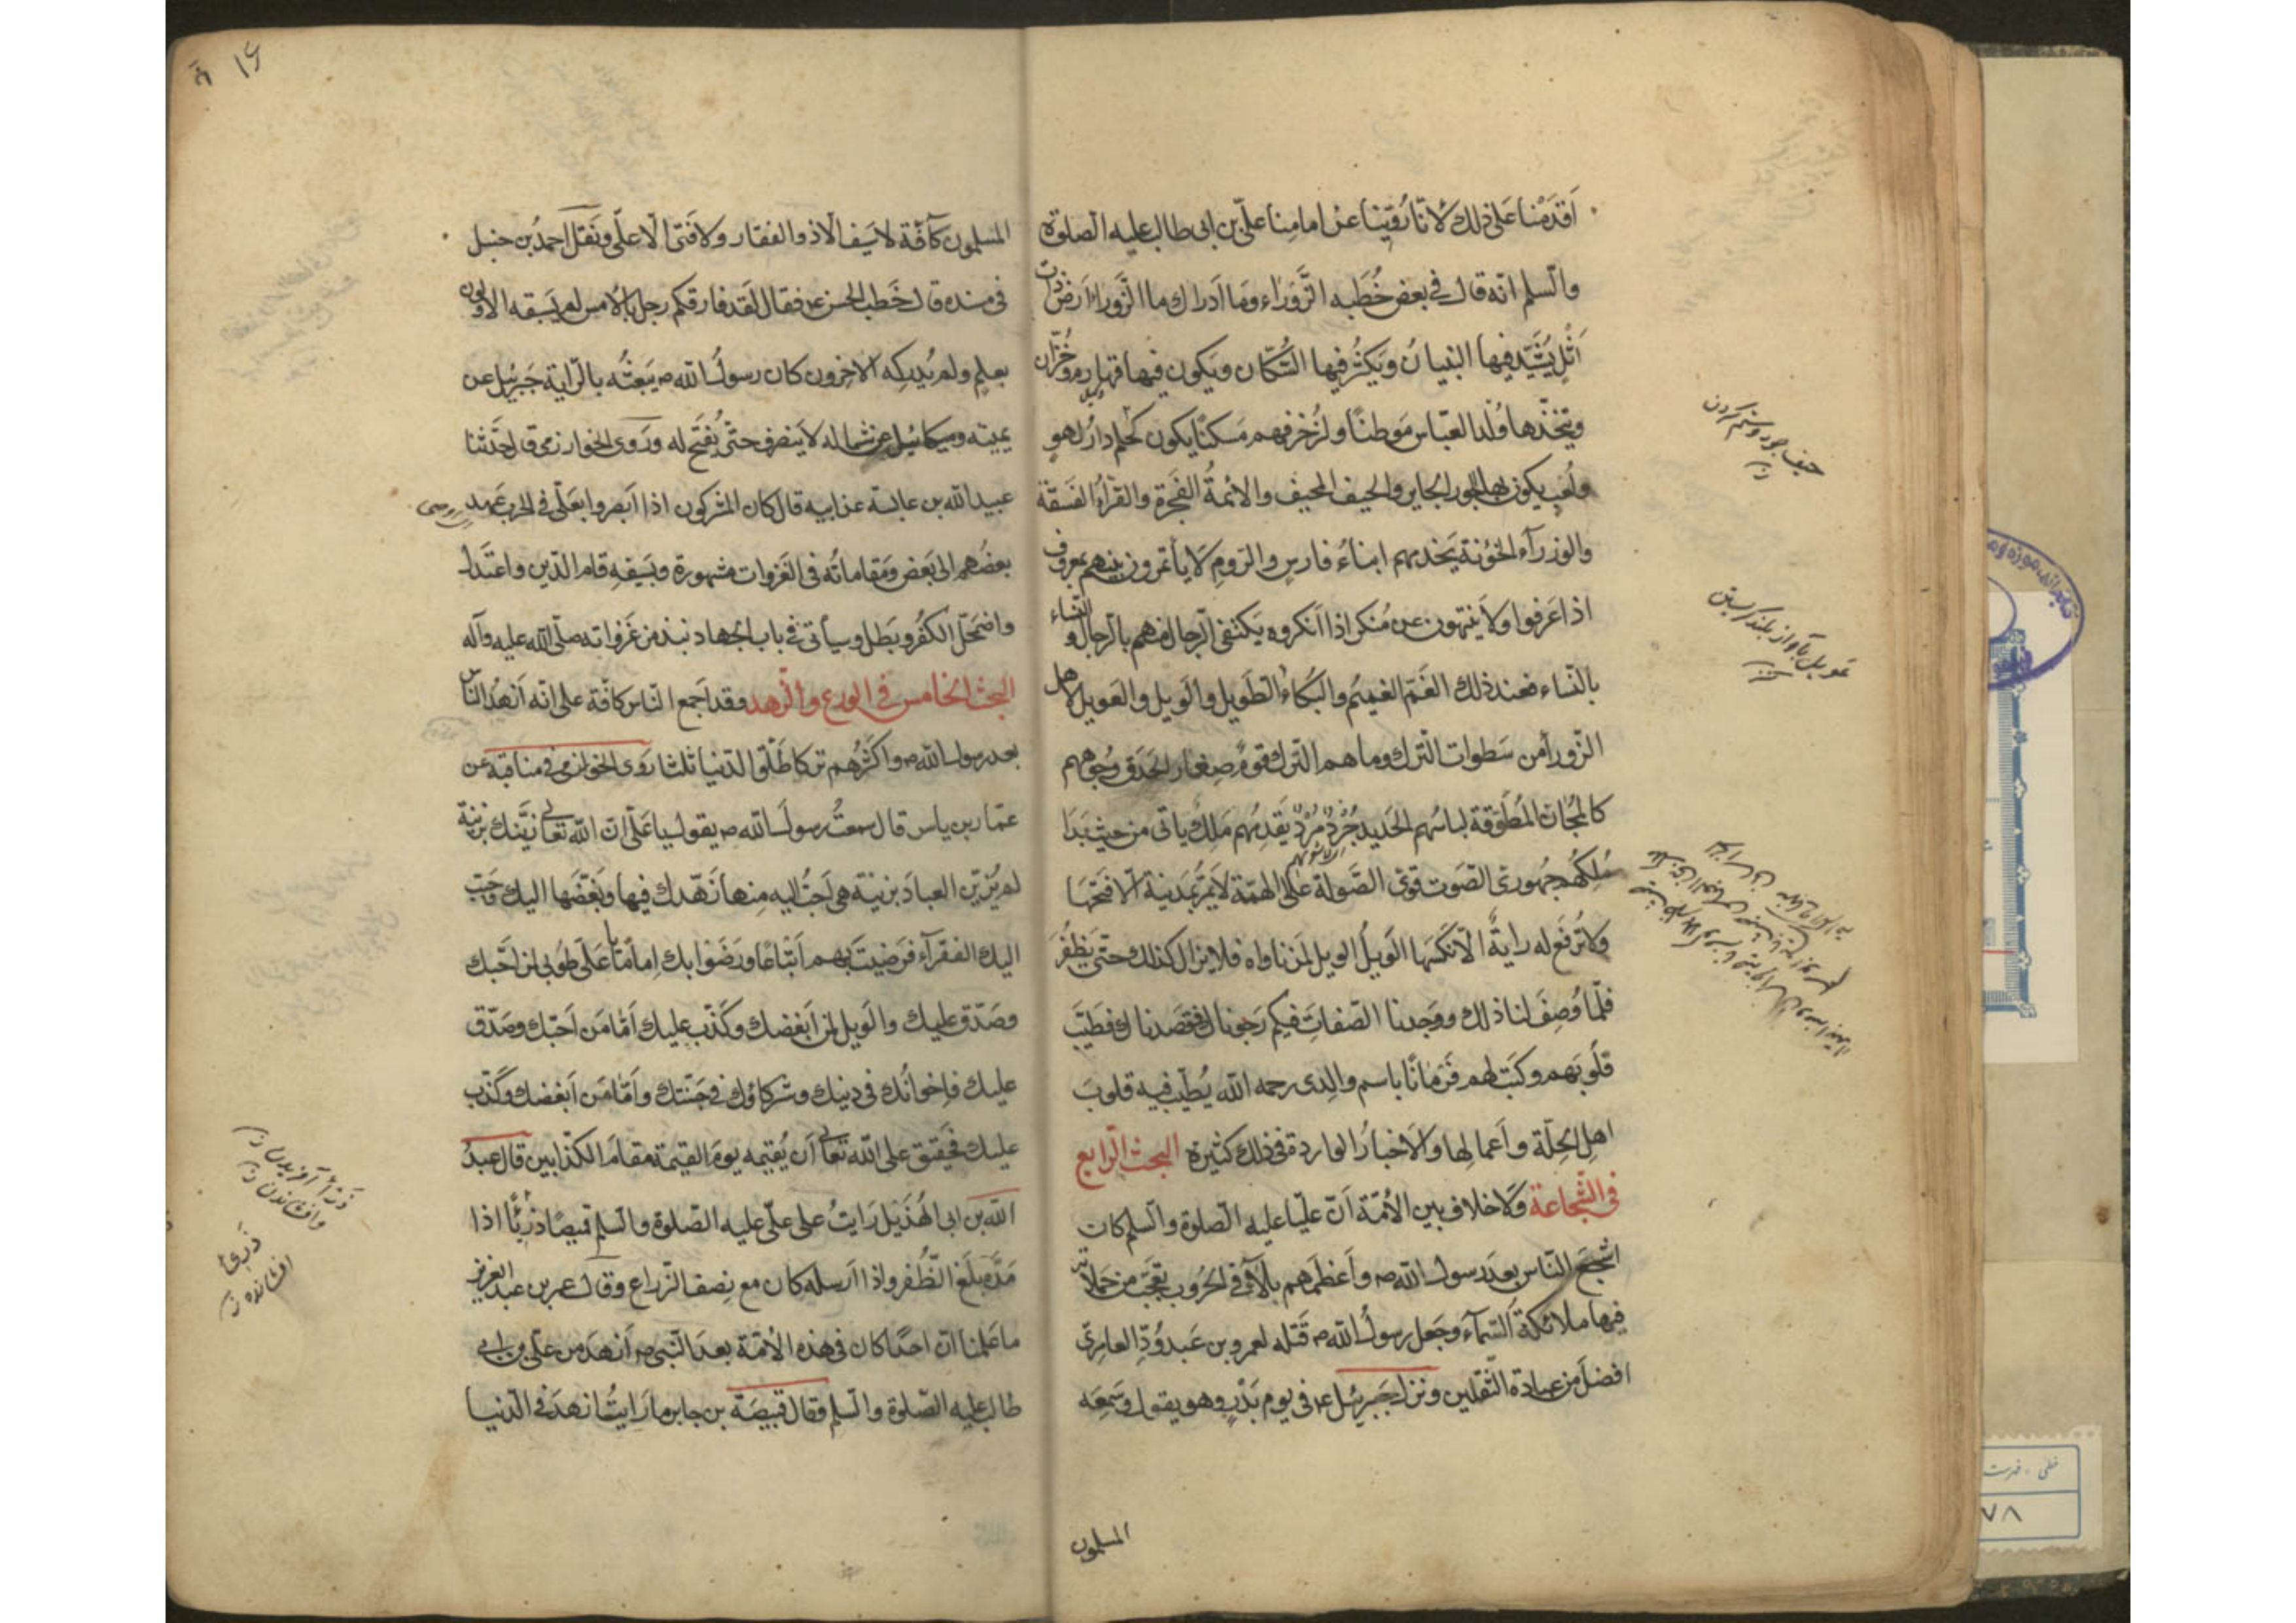 اَقدَمْنا عَلى ذلك لاَنّا رُوّينا عن امامِنا علىّ بن ابى طالب عليه الصلوة
والسلم انّه قال فى بعض خُطَبِه الزَّوراء وما اَدراك ما الزَّوراء اَرض ذات
اَثْلٍ يُشَيَّد فيها البنيان ويَكثُر فيها السُّكّان ويكون فيها قهارمة وخُزّان
ويتّخذها وُلْد العبّاس مَوطنًا ولزُخرفهم مَسكنًا يكون لهم دار لهو
ولُعبٍ يكون بها الجور الجاير والحيف المحيف والائمةُ الفَجَرة والقُرّاءُ الفَسَقة
والوزرآء الخَوَنة يَخدمهم ابناءُ فارس والرّوم لا يأتمرون بينهم بمعروف
اذا عَرَفوا ولا يَنتهون عن مُنكر اذا اَنكروه يكتفى الرّجال منهم بالرّجال والنّساء
بالنّساء فعند ذلك الغمّ الغميم والبُكاءُ الطّويل والوَيل والعَويل لاهل
الزّورآء من سَطوات التّرك وما هم التّرك قومٌ صِغار الحَدَق وُجوههم
كالمجانّ المُطْرَقة لباسُهم الحَديد جُرْدٌ مُرْدٌ يَقدمُهم مَلِكٌ ياتى من حيث بَدَا
مُلكُهم جَهورىّ الصّوت قوىّ الصَّولة عالى الهمّة لا يمرّ بمَدينة الّا فتحها
ولا تُرفَع له رايةٌ الّا نَكَسها الوَيلُ الويل لمن ناواه فلا يزال كذلك حتّى يَظفَرَ
فلمّا وُصِفَ لنا ذلك ووَجدنا الصّفات فيكم رَجوناك فقصدناك فطَيّبَ
قلُوبَهم وكَتَب لهم فَرَمانًا باسم والدى رحمه الله يُطيّب فيه قلوبَ
اهل الحِلّة واَعمالها والاَخبارُ الواردة فى ذلك كثيرة البحث الرّابع
فى الشّجاعة ولا خلاف بين الاُمّة اَنّ عليّا عليه الصلوة والسلم كان
اَشجعَ النّاس بعد رسول الله ص واَعظمَهم بلآءً فى الحُروب تعجّبَ من حَمَلاته
فيها ملائكةُ السّمآء وجَعل رسولُ الله ص قَتْله لعمرو بن عَبدوُدّ العامرىّ
افضلَ من عبادة الثّقَلين ونزل جَبرئيل ع فى يوم بَدْرٍ وهو يقول وسَمِعَه
المسلمون
حيف جور وستم كردن
عويل بآواز بلند گريستن
المسلمون كآفّة لا سَيفَ الّا ذو الفقار ولا فتى الّا علىّ ونَقَل احمدُ بن حنبل
فى مسنده قال خَطب الحسن ع فقال لَقد فارقكم رجل بالامس لم يَسبقه الاوّلون
بعلمٍ ولم يُدركه الآخِرون كان رسولُ الله ص يَبعثُه بالرّاية جَبرئيل عن
يمينه وميكائيل عن شماله لا يَنصرف حتّى يُفتَح له ورَوى الخوارزمى قال حدّثنا
عبيد الله بن عائشة عن ابيه قال كان المشركون اذا اَبصروا بعَلىّ فى الحرب عَهد
بعضُهم الى بَعض ومَقاماتُه فى الغَزوات مشهورة وبسَيفه قام الدّين واعتَدَل
واضمحلّ الكُفر وبَطل وسيأتى فى باب الجهاد نبذ من غَزواته صلّى الله عليه وآله
البحث الخامس فى الورع والزّهد وقد اَجمع النّاس كافّة على انّه اَزهَدُ النّاس
بعد رسول الله ص واكثرُهم تركا طَلّق الدّنيا ثلثا رَوى الخوارزمى فى مناقبه عن
عمّار بن ياسر قال سمعتُ رسولَ الله ص يقول يا عَلىّ انّ الله تعالى زيّنك بزينة
لم يُزَيّن العبادَ بزينة هى اَحبُّ اليه منها زَهّدك فيها وبَغّضَها اليك وحَبّب
اليك الفقرآء فرَضيتَ بهم اَتباعًا ورَضُوا بك اِمامًا يا عَلى طُوبى لمن اَحبّك
وصَدّق عليك والوَيل لمن اَبغضك وكَذَب عليك اَمّا من اَحبّك وصَدّق
عليك فاِخوانُك فى دينك وشركاؤك فى جَنّتك واَمّا مَن اَبغضك وكَذَب
عليك فحقيق على الله تعالى اَن يُقيمه يومَ القيمة مقامَ الكذّابين قال عبدُ
الله بن ابى الهُذَيل رَايتُ على علىّ عليه الصلوة والسلم قميصًا ذرّيًّا اذا
مَدّه بلَغ الظُّفر واذا اَرسله كان مع نِصف الذّراع وقال عمر بن عبد العزيز
ما عَلمنا انّ احدًا كان فى هذه الاُمّة بعد النّبى ص اَزهَدَ من علىّ بن ابى
طالب عليه الصّلوة والسلم وقال قَبيصة بن جابر ما رَايتُ ازهَدَ فى الدّنيا
ذَرْأ آفريدن
وافشاندن
افشانده